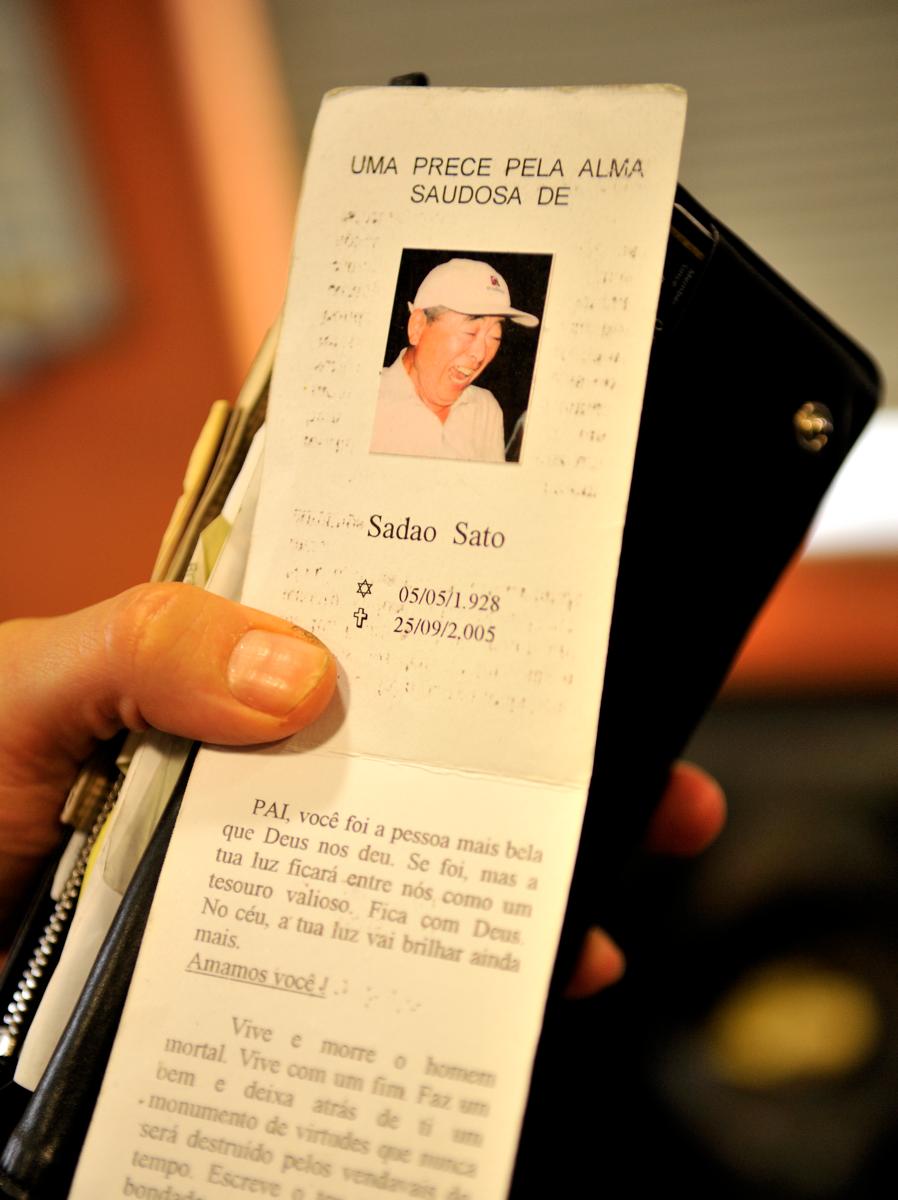 UMA PRECE PELA ALMA
SAUDOSA DE
Sadao Sato
05/05/1.928
25/09/2.005
PAI, você foi a pessoa mais bela
que Deus nos deu. Se foi, mas a
tua luz ficará entre nós como um
tesouro valioso. Fica com Deus.
No céu, a tua luz vai brilhar ainda
mais.
Amamos você!
Vive e morre o homem
mortal. Vive com um fim. Faz um
bem e deixa atrás de ti um
monumento de virtudes que nunca
será destruído pelos vendavais do
tempo. Escreve o